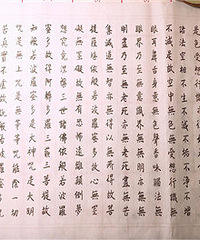 諸法空相不生不滅不垢不淨不增
不減是故空中無色無受想行識無
眼耳鼻舌身意無色聲香味觸法無
眼界乃至無意識界無無明亦無無
明盡乃至無老死亦無老死盡無苦
集滅道無智亦無得以無所得故菩
提薩埵依般若波羅蜜多故心無罣
礙無罣礙故無有恐怖遠離顛倒夢
想究竟涅槃三世諸佛依般若波羅
蜜多故得阿耨多羅三藐三菩提故
知般若波羅蜜多是大神咒是大明
咒是無上咒是無等等咒能除一切
苦真實不虛故說般若波羅